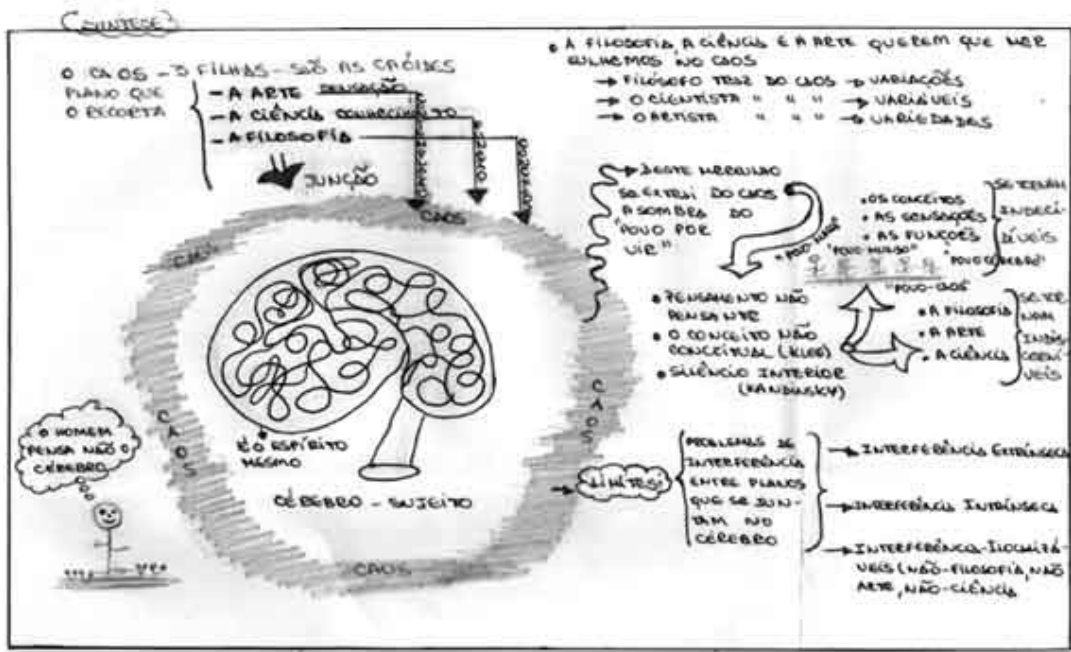 SÍNTESE
O CAOS - 3 FILHAS - SÃO AS CAÓIDES
PLANO QUE
O RECORTA
- A ARTE SENSAÇÃO
- A CIÊNCIA CONHECIMENTO
- A FILOSOFIA
JUNÇÃO
CAOS
CAOS
CAOS
CAOS
CAOS
É O ESPÍRITO
MESMO
CÉREBRO - SUJEITO
O HOMEM
PENSA NÃO O
CÉREBRO
• A FILOSOFIA, A CIÊNCIA E A ARTE QUEREM QUE MER
GULHEMOS NO CAOS
FILÓSOFO TRAZ DO CAOS → VARIAÇÕES
→ O CIENTISTA " " " → VARIÁVEIS
→ O ARTISTA " " " → VARIEDADES
DESTE MERGULHO
SE EXTRAI DO CAOS
A SOMBRA DO
"POVO POR
VIR"
• OS CONCEITOS
• AS SENSAÇÕES
• AS FUNÇÕES
SE TORNAM
INDECI
DÍVEIS
"POVO MASSA"
"POVO-MUNDO"
"POVO CÉREBRO"
"POVO-CAOS"
• PENSAMENTO NÃO
PENSANTE
• O CONCEITO NÃO
CONCEITUAL (KLEE)
• SILÊNCIO INTERIOR
(KANDINSKY)
• A FILOSOFIA
• A ARTE
• A CIÊNCIA
SE TOR
NAM
INDIS
CERNÍ
VEIS
PROBLEMAS DE
INTERFERÊNCIA
ENTRE PLANOS
QUE SE JUN-
TAM NO
CÉREBRO
→ INTERFERÊNCIA EXTRÍNSECA
→ INTERFERÊNCIA INTRÍNSECA
→ INTERFERÊNCIA-ILOCALIZÁ-
VEIS (NÃO-FILOSOFIA, NÃO
ARTE, NÃO-CIÊNCIA